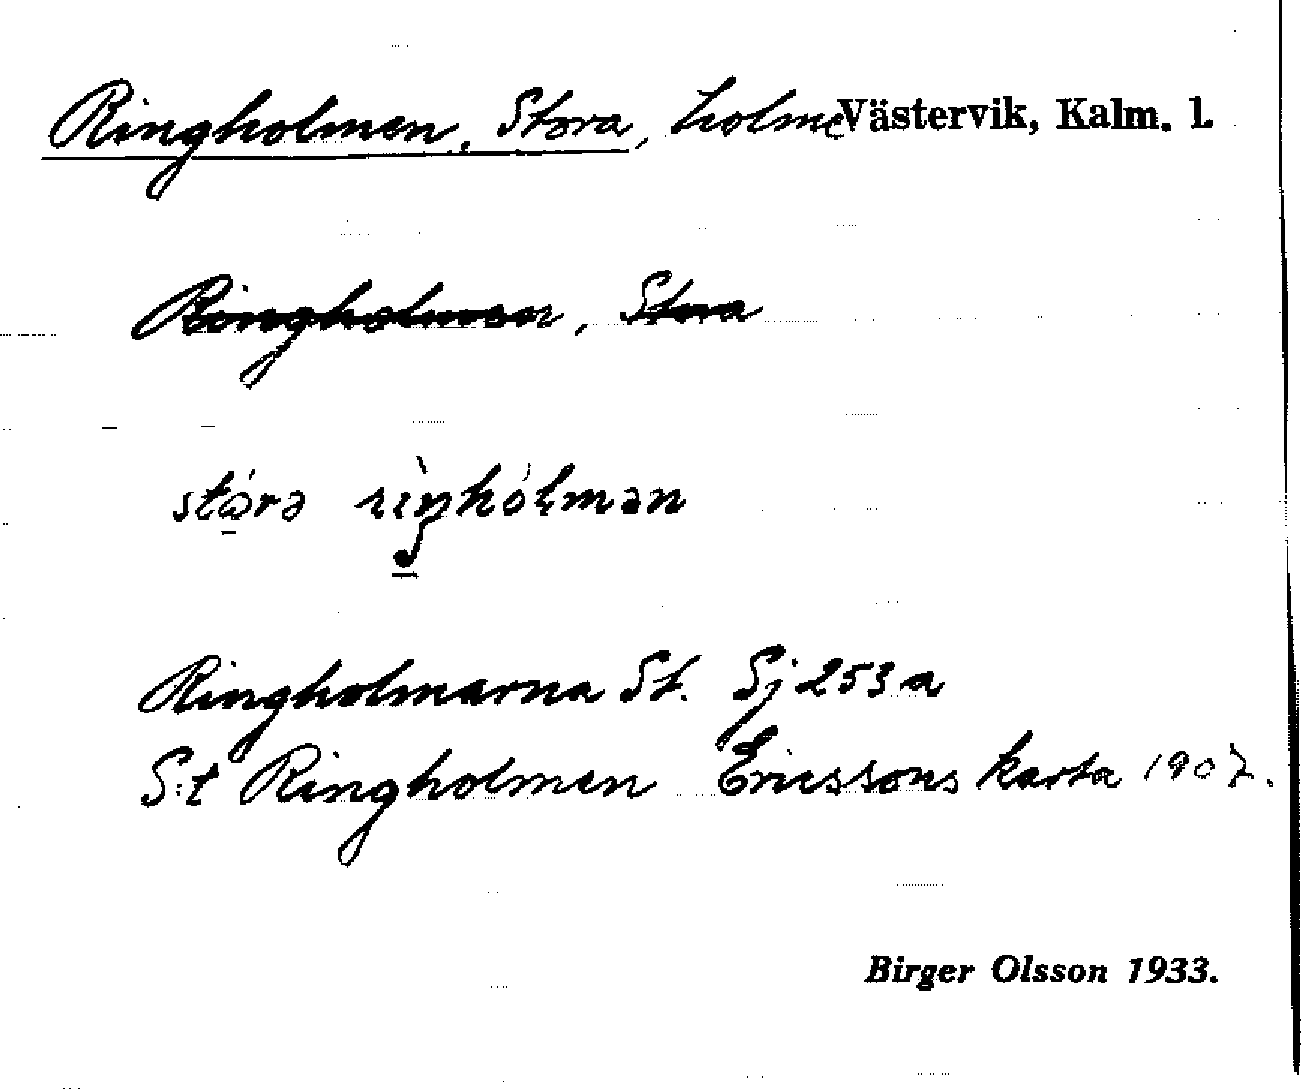 Ringholmen, Stora, holme Västervik, Kalm. l.
Ringholmen, Stora
Ringholmarna St. Sj 253 a
S:t Ringholmen Ericssons karta 1907.
Birger Olsson 1933.